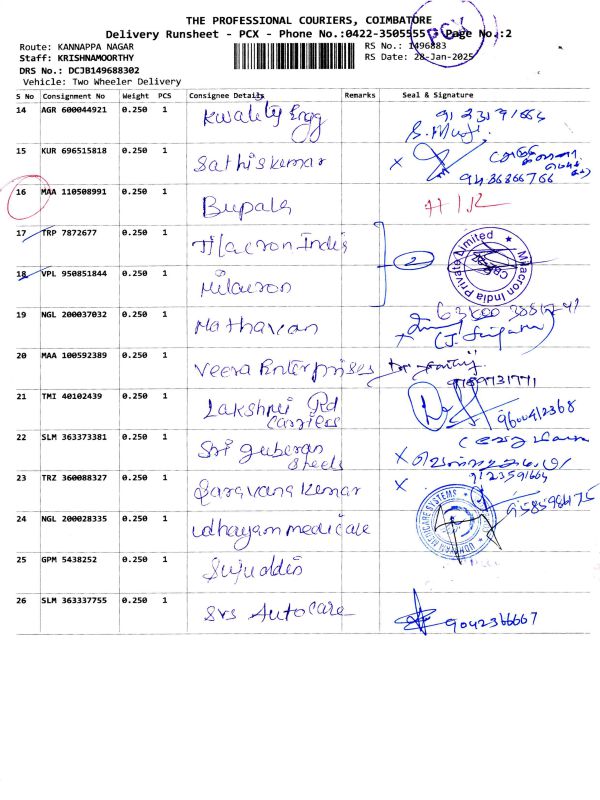 THE PROFESSIONAL COURIERS, COIMBATORE
Delivery Runsheet - PCX - Phone No.:0422-3505555 Page No.:2
PCX
Route: KANNAPPA NAGAR
RS No.: 1496883
Staff: KRISHNAMOORTHY
RS Date: 28-Jan-2025
DRS No.: DCJB149688302
Vehicle: Two Wheeler Delivery
S No Consignment No Weight PCS Consignee Details Remarks Seal & Signature
14 AGR 600044921 0.250 1 Kwality Engg
15 KUR 696515818 0.250 1 Sathiskumar
16 MAA 110508991 0.250 1 Bupala
17 TRP 7872677 0.250 1 Milacron India
2
Milacron India Private Limited
18 VPL 950851844 0.250 1 Milacron
19 NGL 200037032 0.250 1 Mathavan
20 MAA 100592389 0.250 1 Veera Enterprises
21 TMI 40102439 0.250 1 Lakshmi Rd Carriers 9600412368
22 SLM 363373381 0.250 1 Sri guberan Steels
23 TRZ 360088327 0.250 1 Saravana kumar 9123591664
24 NGL 200028335 0.250 1 udhayam medicare
UDHAYAM MEDICARE SYSTEMS
25 GPM 5438252 0.250 1 Sujuddin
26 SLM 363337755 0.250 1 Srs Autocare 9042366667